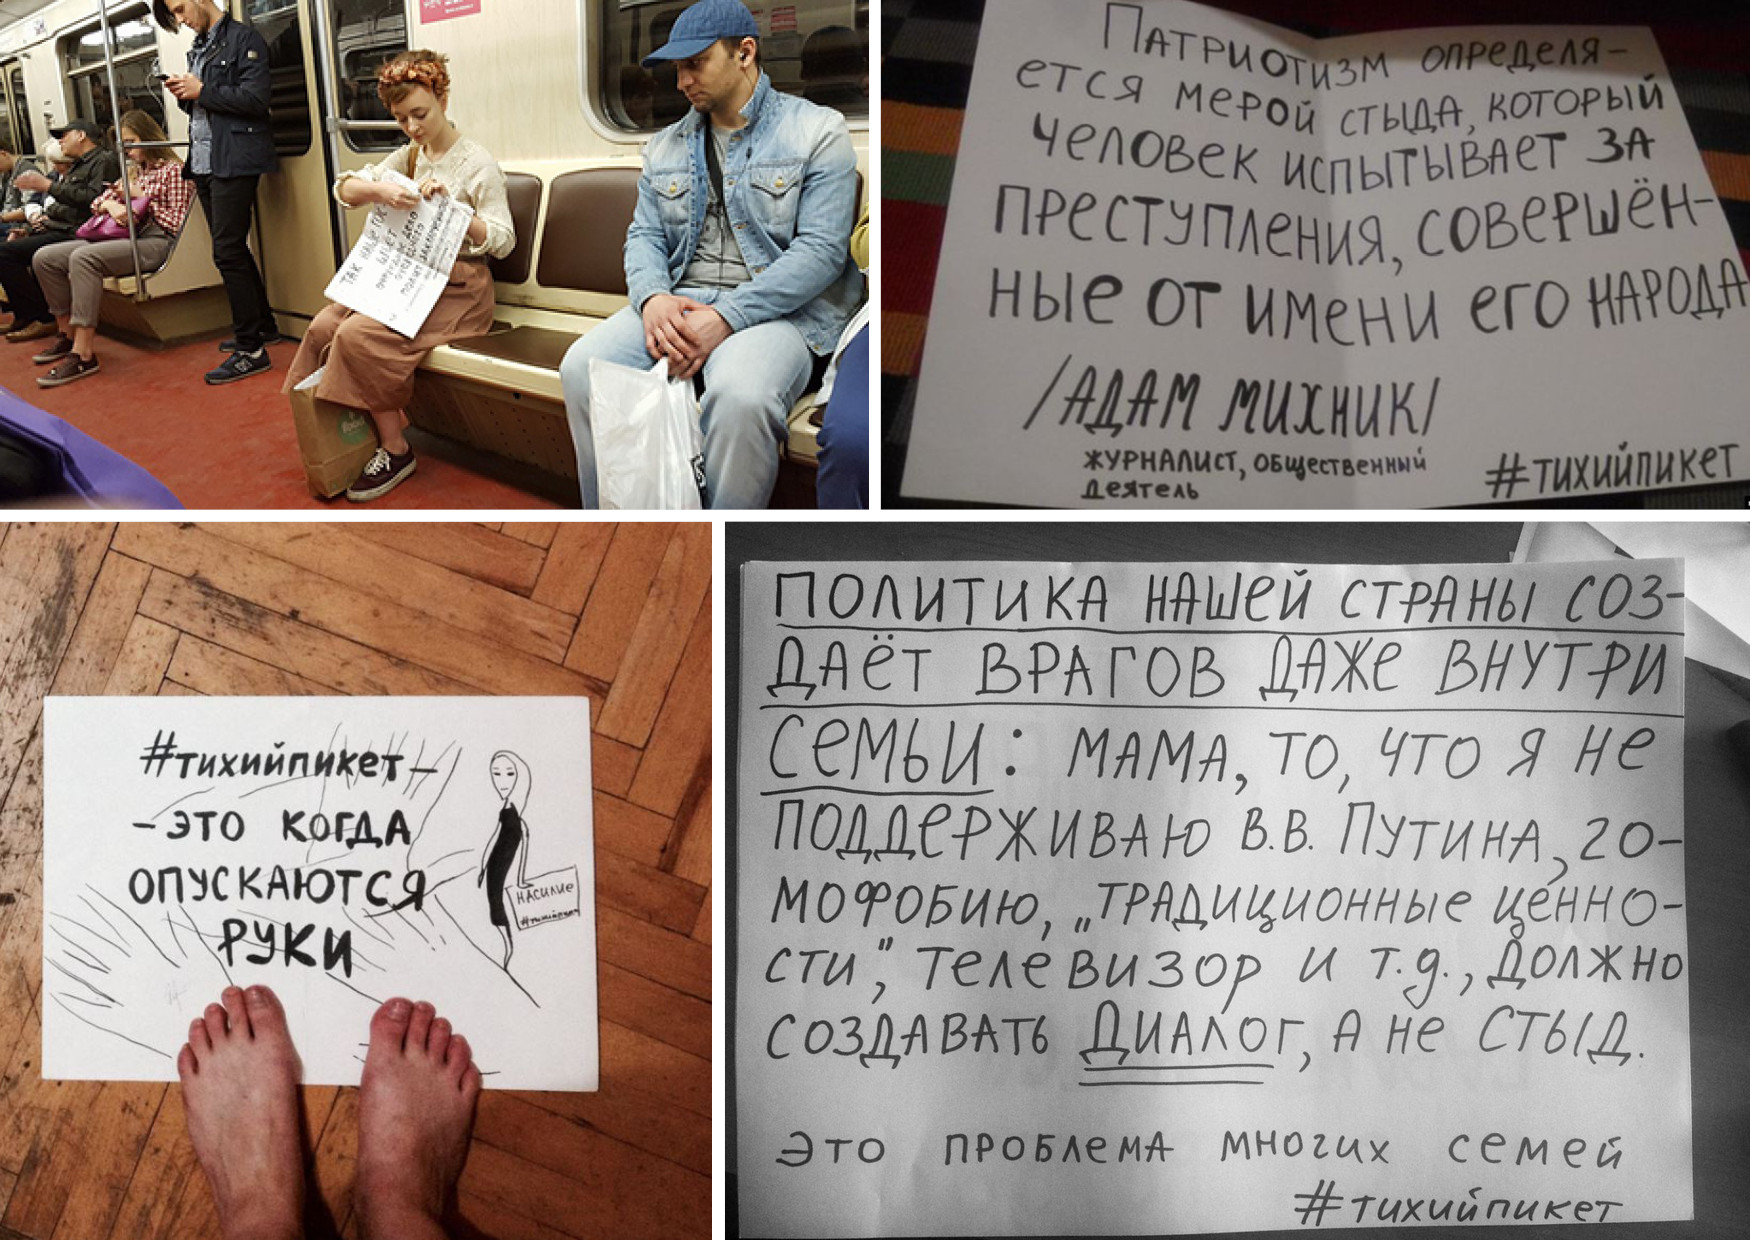 ТАК НАЗЫ
ПАТРИОТИЗМ ОПРЕДЕЛЯ-
ЕТСЯ МЕРОЙ СТЫДА, КОТОРЫЙ
ЧЕЛОВЕК ИСПЫТЫВАЕТ ЗА
ПРЕСТУПЛЕНИЯ, СОВЕРШЁН-
НЫЕ ОТ ИМЕНИ ЕГО НАРОДА
/АДАМ МИХНИК/
ЖУРНАЛИСТ, ОБЩЕСТВЕННЫЙ
ДЕЯТЕЛЬ
#ТИХИЙПИКЕТ
#ТИХИЙПИКЕТ–
–ЭТО КОГДА
ОПУСКАЮТСЯ
РУКИ
НАСИЛИЕ
#тихийпикет
ПОЛИТИКА НАШЕЙ СТРАНЫ СОЗ-
ДАЁТ ВРАГОВ ДАЖЕ ВНУТРИ
СЕМЬИ: МАМА, ТО, ЧТО Я НЕ
ПОДДЕРЖИВАЮ В.В. ПУТИНА, ГО-
МОФОБИЮ, „ТРАДИЦИОННЫЕ ЦЕННО-
СТИ", ТЕЛЕВИЗОР И Т.Д., ДОЛЖНО
СОЗДАВАТЬ ДИАЛОГ, А НЕ СТЫД.
ЭТО ПРОБЛЕМА МНОГИХ СЕМЕЙ
#ТИХИЙПИКЕТ